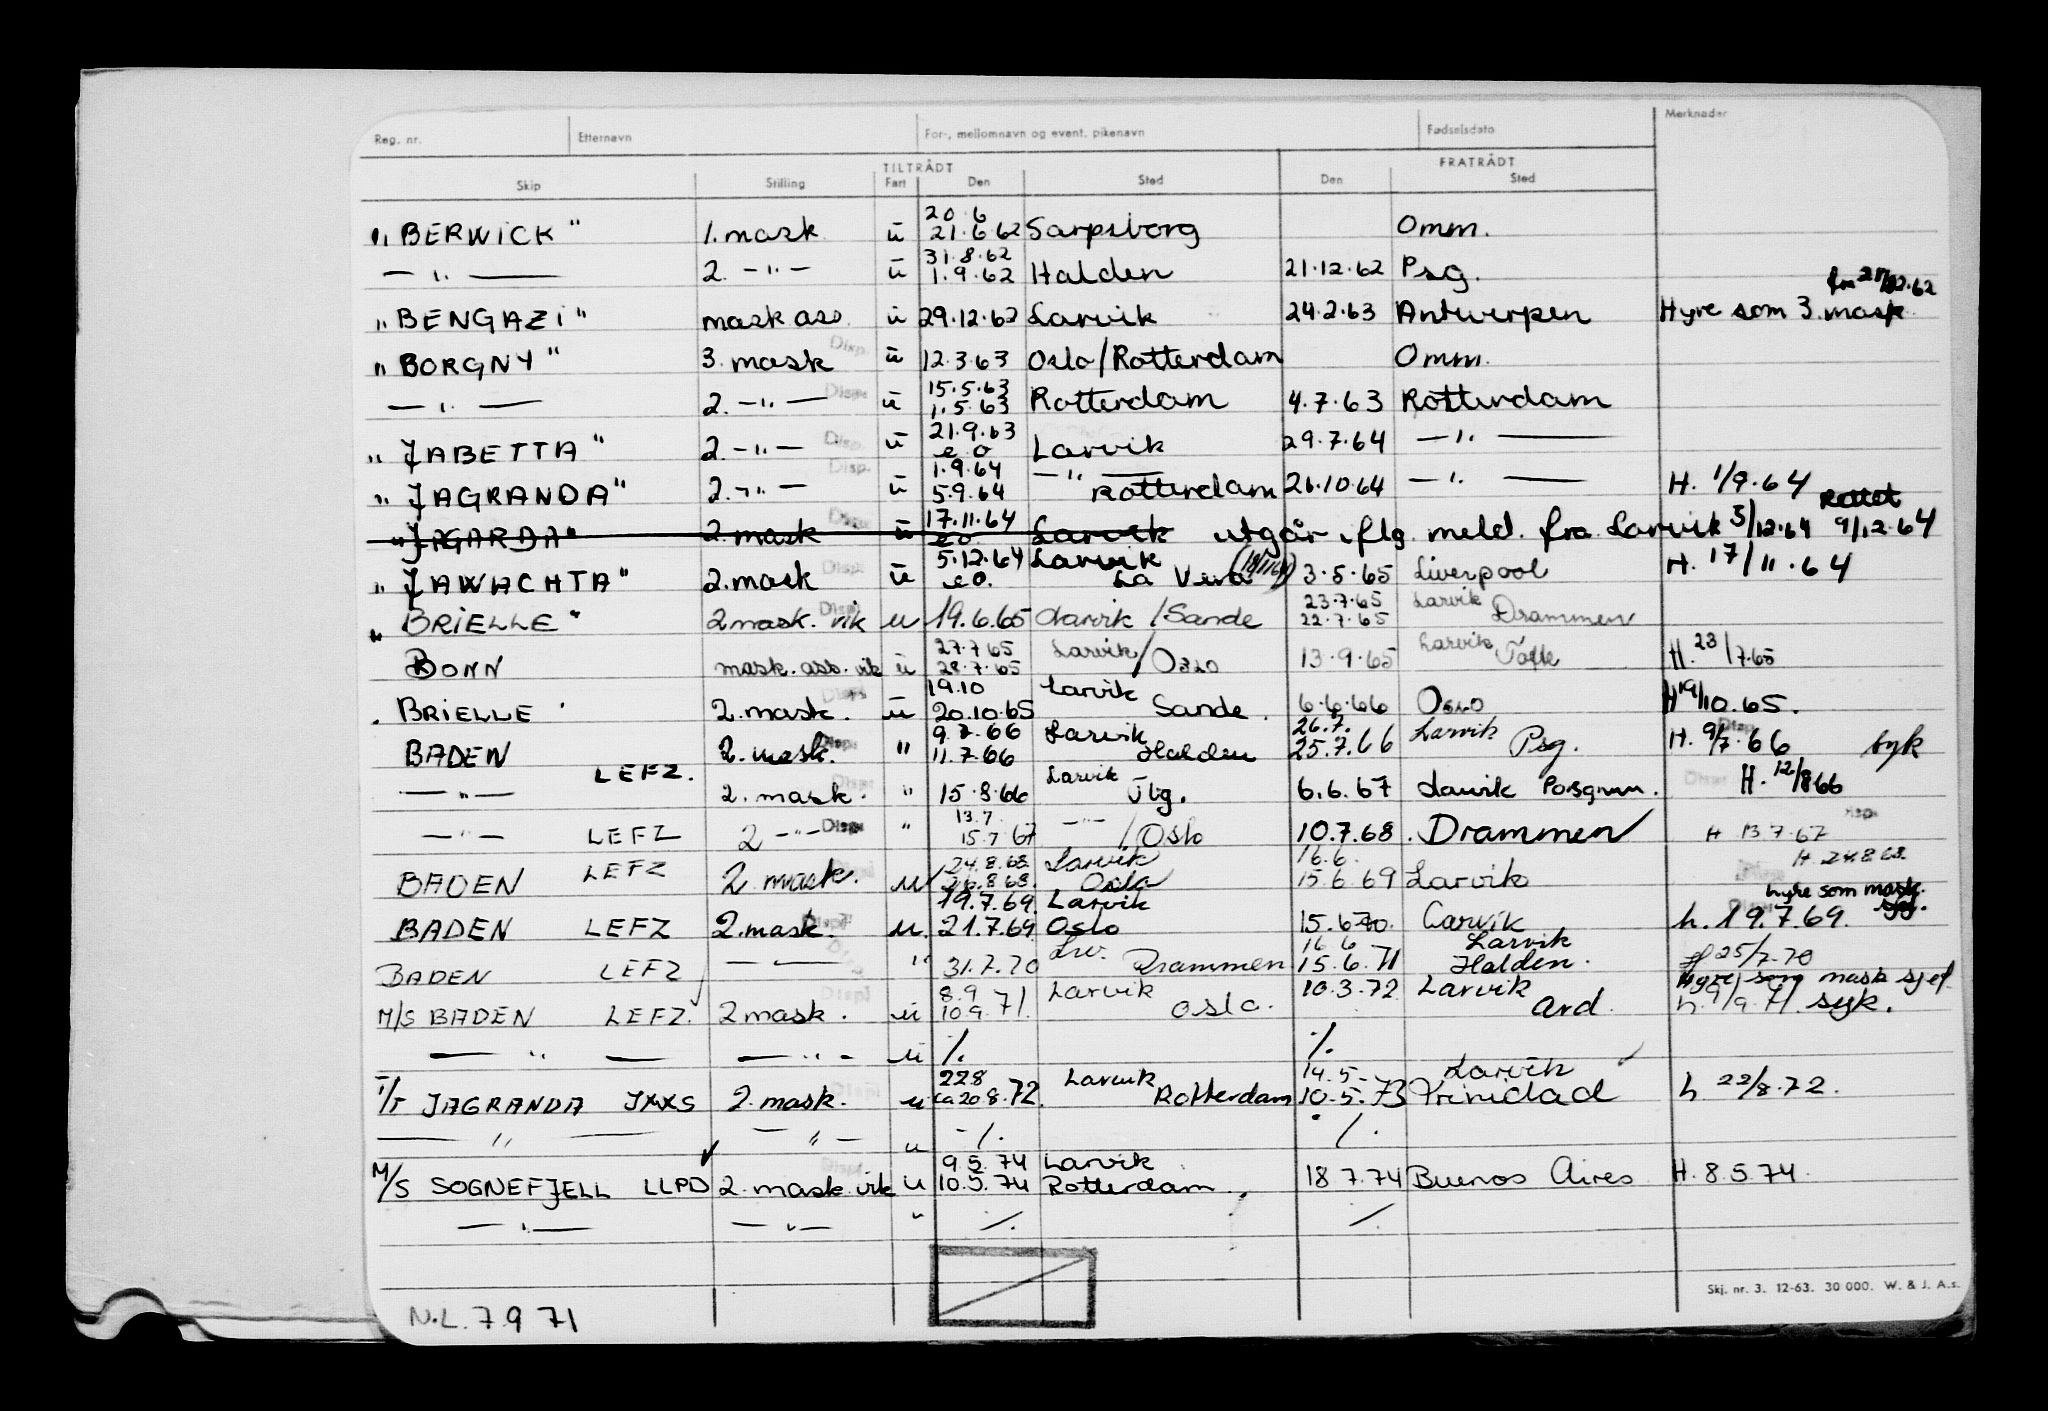 Reg. nr. Etternavn For-, mellomnavn og event. pikenavn Fødselsdato Merknader
TILTRÅDT FRATRÅDT
Skip Stilling Fart Den Sted Den Sted
"BERWICK" 1. mask ū 20.6 21.6.62 Sarpsborg Omm.
— " — 2. — " — ū 31.8.62 1.9.62 Halden 21.12.62 Psg.
"BENGAZI" mask ass. ū 29.12.62 Larvik 24.2.63 Antwerpen Hyre som 3. mask
"BORGNY" 3. mask Disp. ū 12.3.63 Oslo/Rotterdam Omm.
— " — 2. — " — Disp. ū 15.5.63 1.5.63 Rotterdam 4.7.63 Rotterdam
"JABETTA" 2. — " — Disp. ū 21.9.63 e.o Larvik 29.7.64 — " —
"JAGRANDA" 2. — " — Disp. ū 1.9.64 5.9.64 — " — Rotterdam 26.10.64 — " — H. 1/9.64
"JAGARDA" 2. mask Disp. ū 17.11.64 e.o Larvik utgår iflg. meld. fra Larvik 5/12.64 9/12.64
"JAWACHTA" 2. mask Disp. ū 5.12.64 e.o. Larvik La Vera 3.5.65 Liverpool H. 17/11.64
"BRIELLE" 2 mask. vik Disp. u 19.6.65 Larvik / Sande 23.7.65 22.7.65 Larvik Drammen
BONN mask. ass. vik ū 27.7 65 28.7.65 Larvik / Oslo 13.9.65 Larvik Tofte H. 23/7.65
BRIELLE 2. mask. ū 19.10 20.10.65 Larvik Sande. 6.6.66 Oslo H 19/10.65.
BADEN 2. mask. Disp. " 9.7.66 11.7.66 Larvik Halden 26.7. 25.7.66 Larvik Psg. H. 9/7.66 syk
— " — LEFZ. 2. mask. " 15.8.66 Larvik Tbg. 6.6.67 Larvik Porsgrunn. H. 12/8 66
— " — LEFZ 2 — " — Disp. " 13.7. 15.7 67 — " — / Oslo 10.7.68. Drammen H 13.7.67
BADEN LEFZ 2 mask. u 24.8.68. 26.8 68. Larvik Oslo 16.6. 15.6.69 Larvik H 24.8 68.
BADEN LEFZ 2. mask. u. 19.7.69. 21.7.69 Larvik Oslo 15.6.70. Larvik hyre som mask. sjef. h. 19.7.69.
BADEN LEFZ — " — " 31.7.70 Lrv. Drammen 16 6 15.6.71 Larvik Halden. H 25/7-70
M/S BADEN LEFZ. 2 mask. u 8.9 10.9.71. Larvik Oslo. 10.3.72 Larvik Ard. Hyre som mask sjef h. 9/9.71. syk.
— " — — " — u ·/. ·/.
T/T JAGRANDA JXXS 2. mask. u 22 8 ca 20.8.72. Larvik Rotterdam 14.5.- 10.5.73 Larvik Trinidad h 22/8.72.
— " — — " — u -/. ·/.
M/S SOGNEFJELL LLPD 2. mask. vik u 9.5.74 10.5.74 Larvik Rotterdam. 18 7.74 Buenos Aires H. 8.5 74.
— " — — " — " ·/. ·/.
Skj. nr. 3. 12-63. 30 000. W. & J. A.s.
N.L. 7.9 71